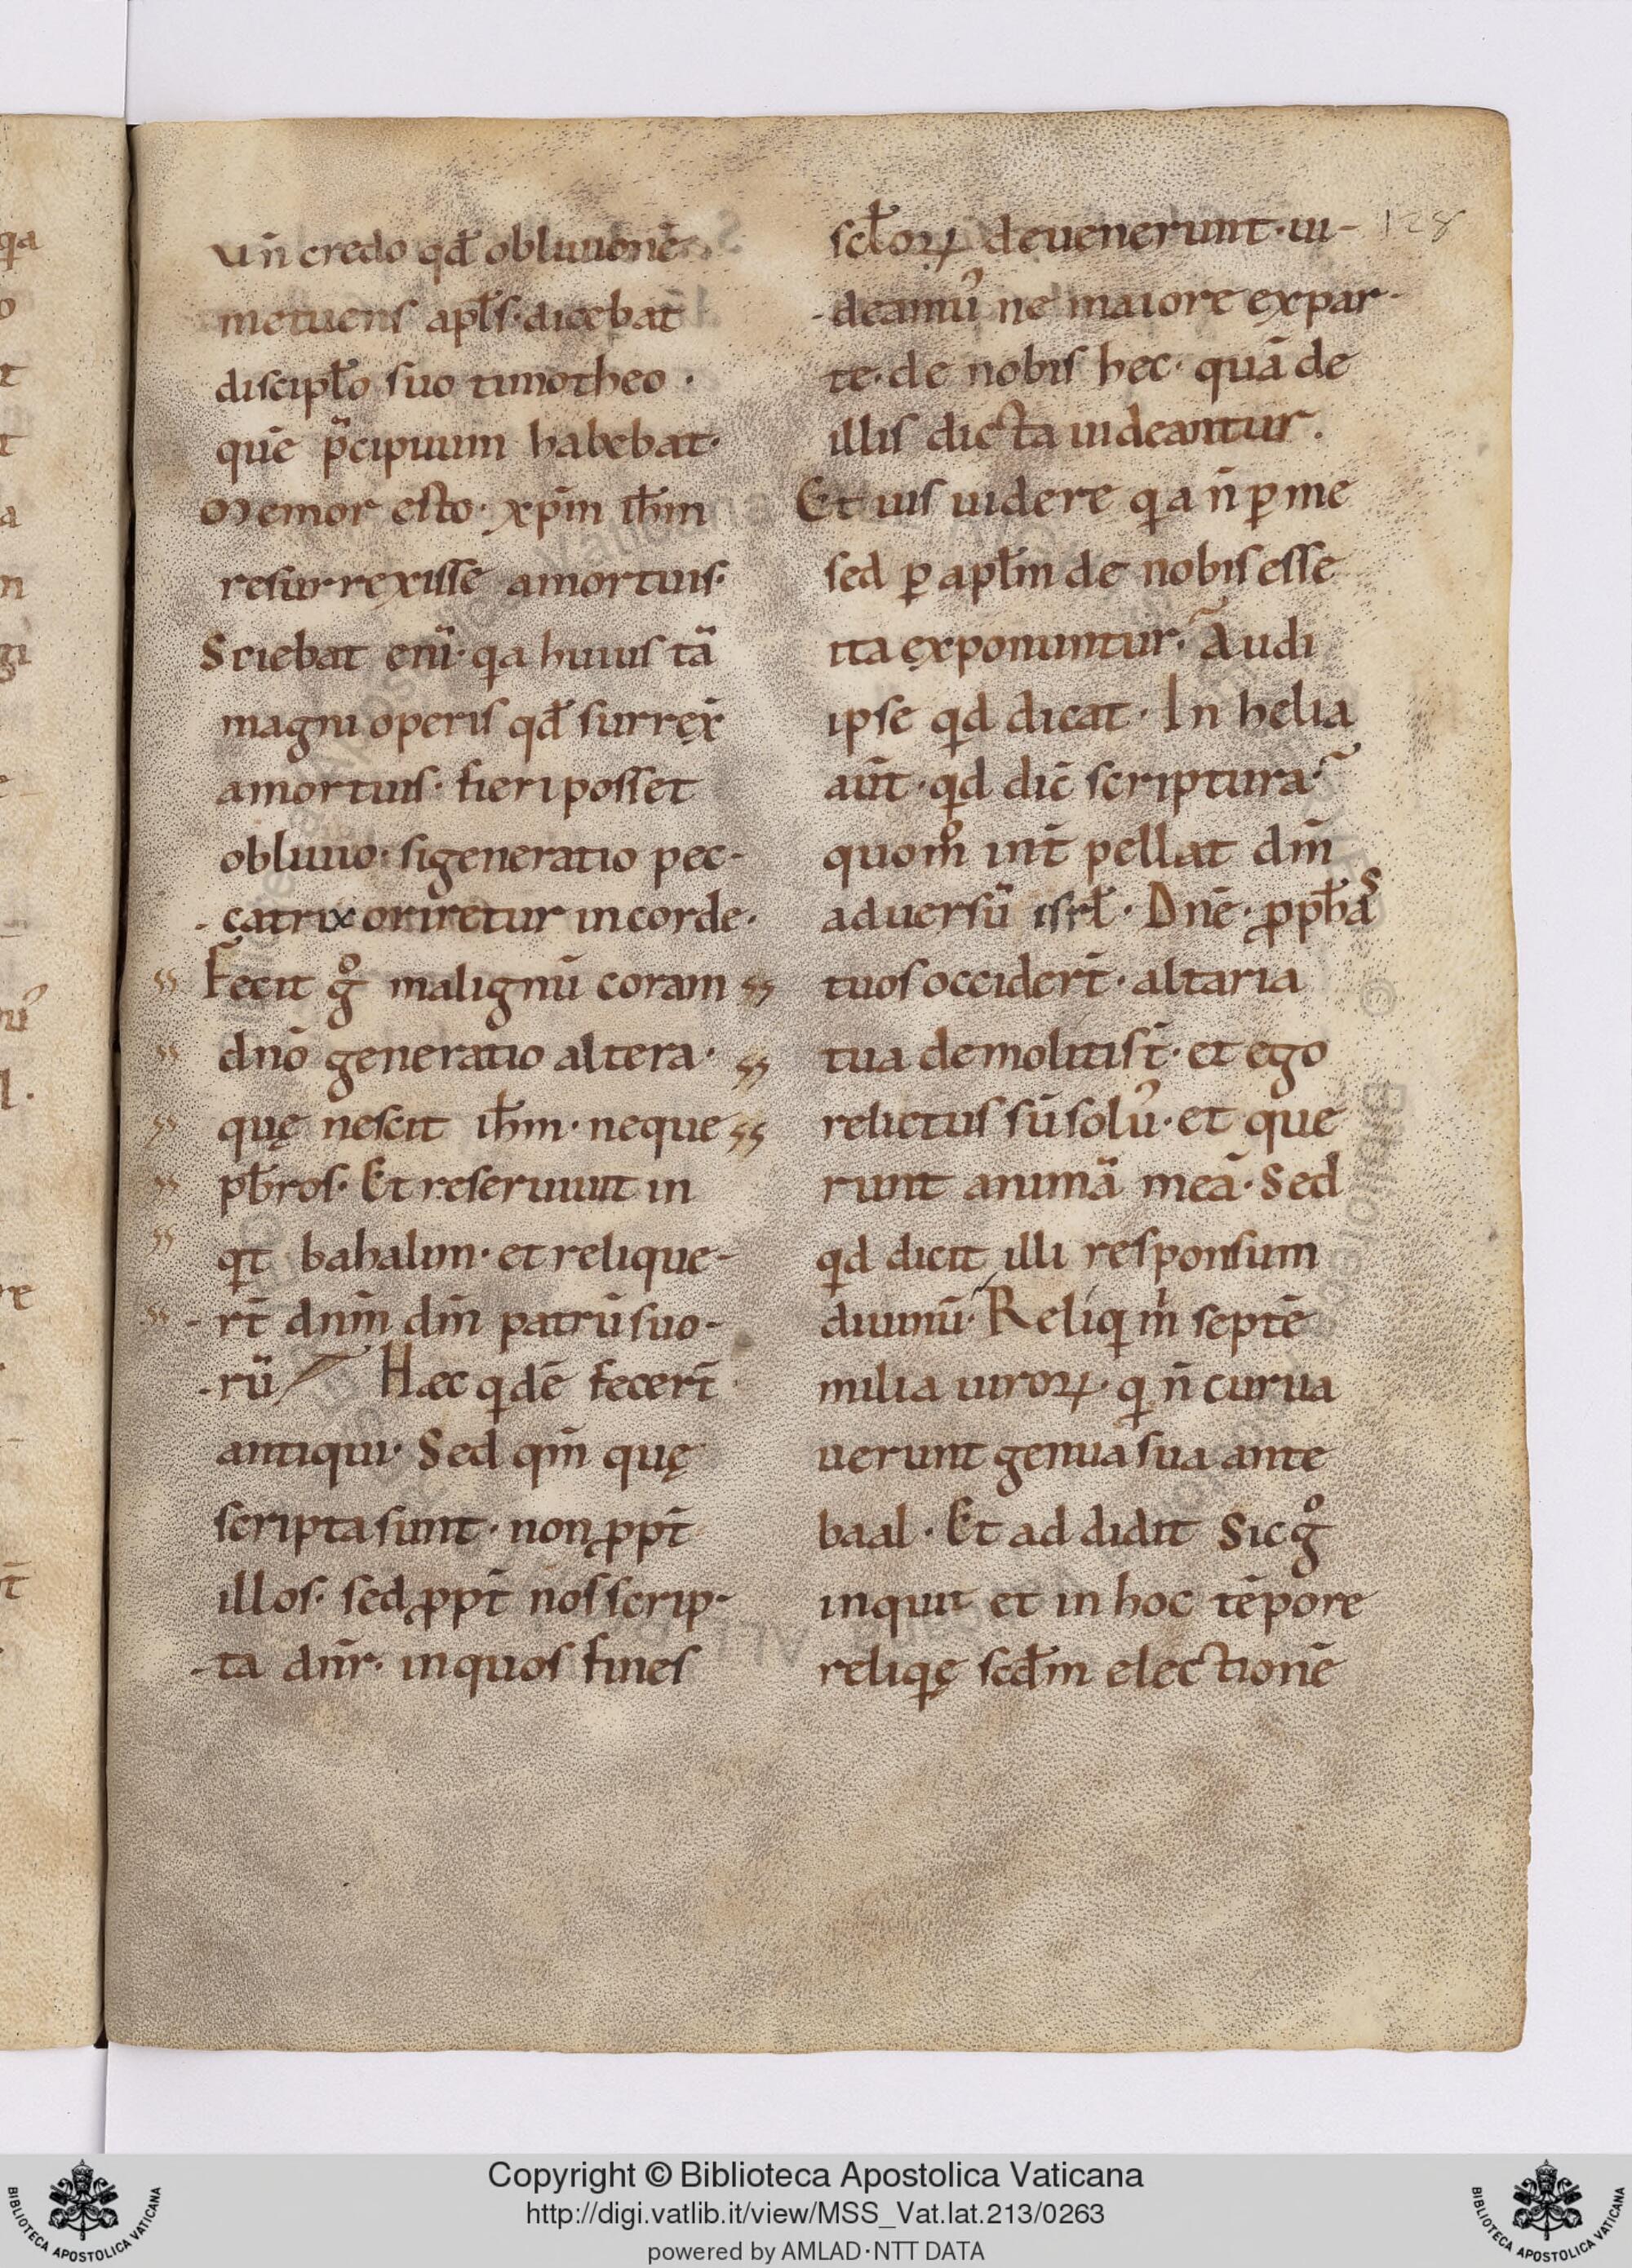 un̄ credo qđ obliuionē
metuens apl̄s· dicebat
discipl̄o suo timotheo ·
quē p̄cipuum habebat·
Memor esto· xp̄m ih̄m
resurrexisse amortuis·
Sciebat enī· qa huius tā
magni operis qđ surrex̄
amortuis· fieri posset
obliuio· si generatio pec-
catrix oriretur in corde·
Fecit gͦ malignū coram
dn̄o generatio altera·
quę nescit ih̄m· neque
pb̄ros· Et reseruiuit in
qt̄ bahalim· et relique-
rt̄ dnm̄ dm̄ patrū suo-
rū Hæc qdē fecert̄
antiqui· Sed qm̄ quę
scripta sunt· non ꝓpt̄
illos· sed ꝓpt̄ nos scrip-
ta dn̄r· in quos fines
128
scl̄oꝝ deuenerunt· ui-
deamu᾽ ne maiore ex par-
te· de nobis hec· quā de
illis dicta uideantur·
Et uis uidere qa n̄ ꝑ me
sed ꝑ apl̄m de nobis esse
ita exponuntur· Audi
ipse qd dicat· In helia
aūt· qd dic̄ scriptura·
quom̊ int̄ pellat dm̄
aduersū isrl̄· Dn̄e· ꝓph̄as
tuos occidert̄· altaria
tua demolitist̄· et ego
relictus sū solu᾽· et que
runt animā meā· Sed
qd dicit illi responsum
diuinū· Reliqi m̍ septē
milia uiroꝝ· qi n̄ curua
uerunt genua sua ante
baal· Et addidit Sic gͦ
inquit et in hoc tēpore
reliqę scđm electionē
Copyright © Biblioteca Apostolica Vaticana
http://digi.vatlib.it/view/MSS_Vat.lat.213/0263
powered by AMLAD·NTT DATA
BIBLIOTECA APOSTOLICA VATICANA
BIBLIOTECA APOSTOLICA VATICANA